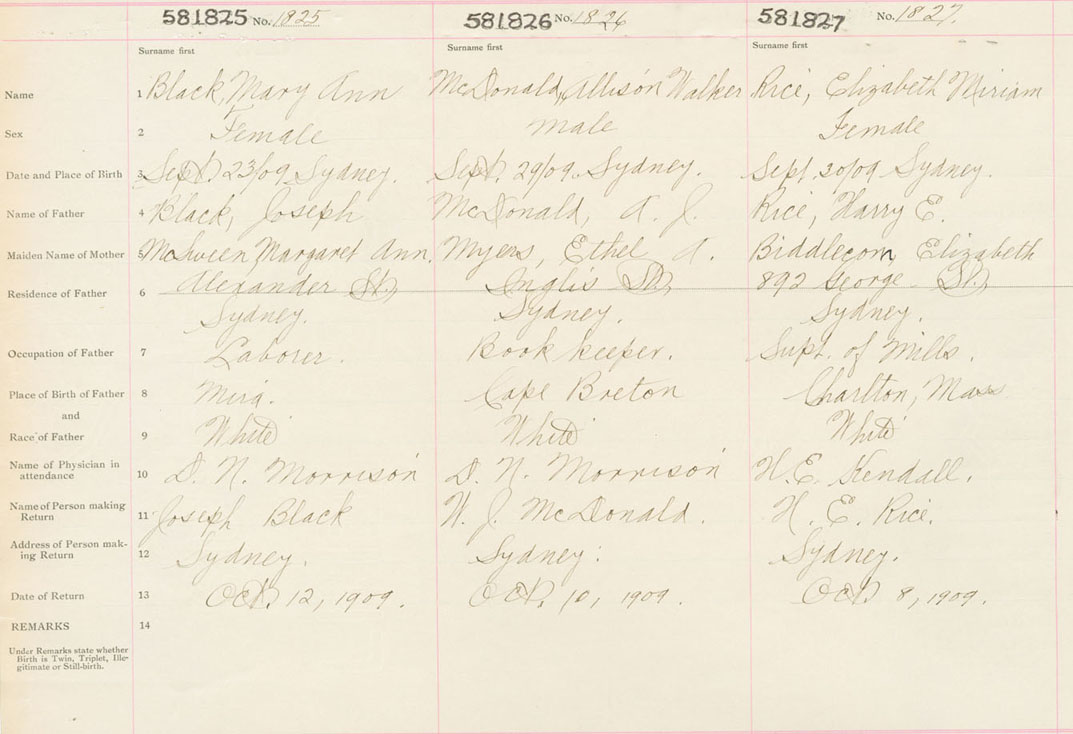 581825 No. 1825 581826 No. 1826 581827 No. 1827.
Surname first Surname first Surname first
Name 1 Black, Mary Ann McDonald, Allison Walker Rice, Elizabeth Miriam
Sex 2 Female Male Female
Date and Place of Birth 3 Sept. 23/09 Sydney. Sept. 29/09 Sydney. Sept. 20/09 Sydney.
Name of Father 4 Black, Joseph McDonald, A. J. Rice, Harry E.
Maiden Name of Mother 5 McSween, Margaret Ann. Myers, Ethel A. Biddlecom, Elizabeth
Residence of Father 6 Alexander St. Inglis St. 892 George St.
Sydney. Sydney. Sydney.
Occupation of Father 7 Laborer. Book keeper. Supt. of Mills.
Place of Birth of Father 8 Mira. Cape Breton Charlton, Mass
and
Race of Father 9 White White White
Name of Physician in
attendance 10 D. N. Morrison D. N. Morrison H. E. Kendall.
Name of Person making
Return 11 Joseph Black W. J. McDonald. H. E. Rice.
Address of Person mak-
ing Return 12 Sydney. Sydney. Sydney.
Date of Return 13 Oct. 12, 1909. Oct. 10, 1909. Oct. 8, 1909.
REMARKS 14
Under Remarks state whether
Birth is Twin, Triplet, Ille-
gitimate or Still-birth.